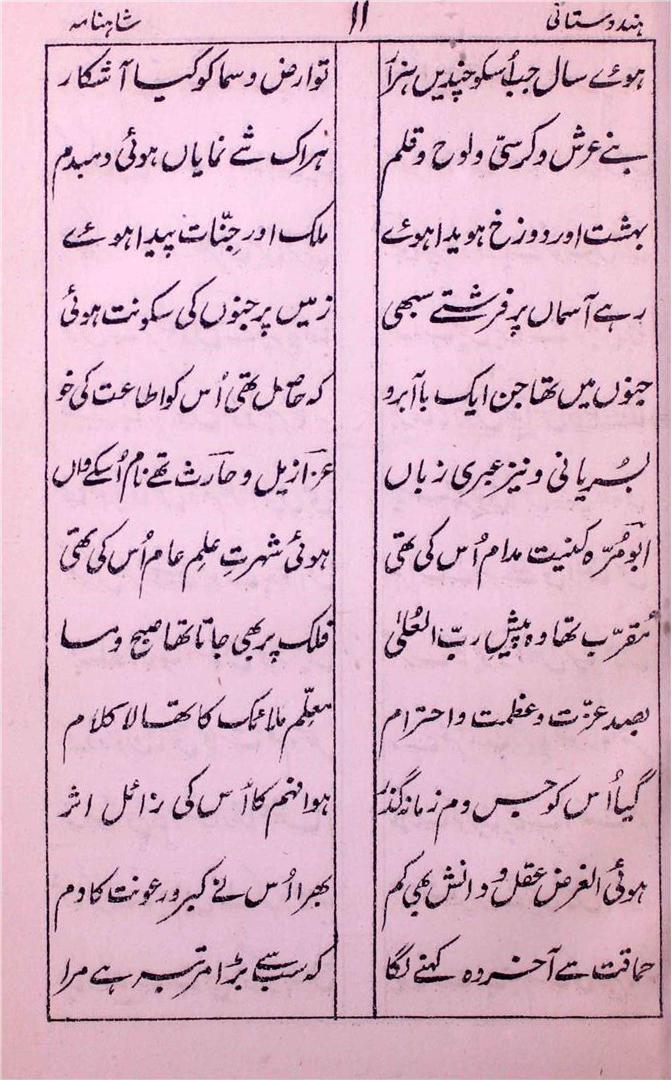 ہندوستانی ۱۱ شاہنامہ
ہوئے سال جب اُسکو چندیں ہزار تو ارض و سما کو کیا آشکار
بنے عرش و کرسیّ و لوح و قلم ہر اک شے نمایاں ہوئی دمبدم
بہشت اور دوزخ ہویدا ہوئے ملک اور جِنّات پیدا ہوئے
رہے آسماں پر فرشتے سبھی زمیں پر جنوں کی سکونت ہوئی
جنوں میں تھا جن ایک با آبرو کہ حاصل تھی اُس کو اطاعت کی خو
بسُریانی و نیز عبری زباں عزازیل و حارث تھے نام اُسکے واں
ابو مُرّہ کنیت مدام اُس کی تھی ہوئی شہرتِ علم عام اُس کی تھی
مُقرّب تھا وہ پیشِ ربّ العُلیٰ فلک پر بھی جاتا تھا صبح و مسا
بصد عزّت و عظمت و احترام معلّم ملائک کا تھا لا کلام
گیا اُس کو جس دم زمانہ گذر ہوا فہم کا اُس کی زائل اثر
ہوئی الغرض عقل و دانش بھی کم بھرا اُس نے کبر و رعونت کا دم
حماقت سے آخر وہ کہنے لگا کہ سب سے بڑا مرتبہ ہے مرا